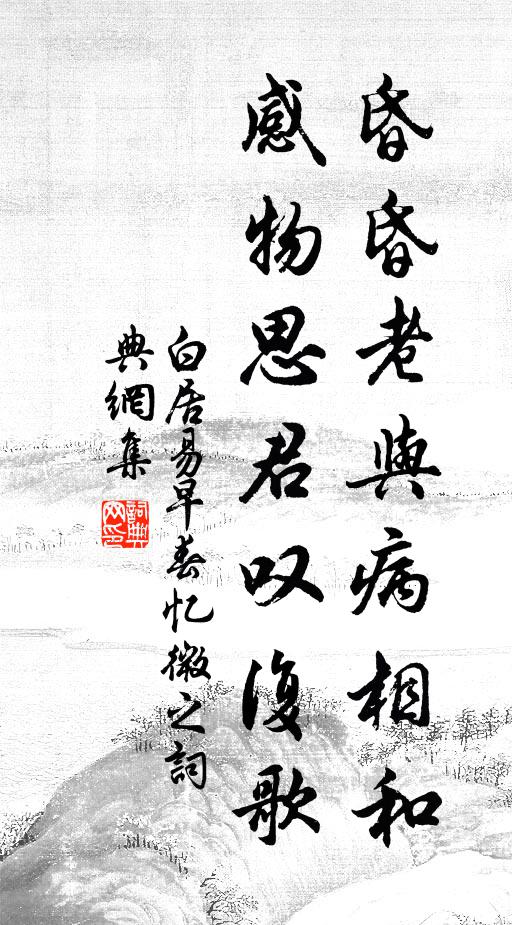 昏昏老與病相和
感物思君叹復歌
白居易早春忆微之詞
典網集
詞典
网印